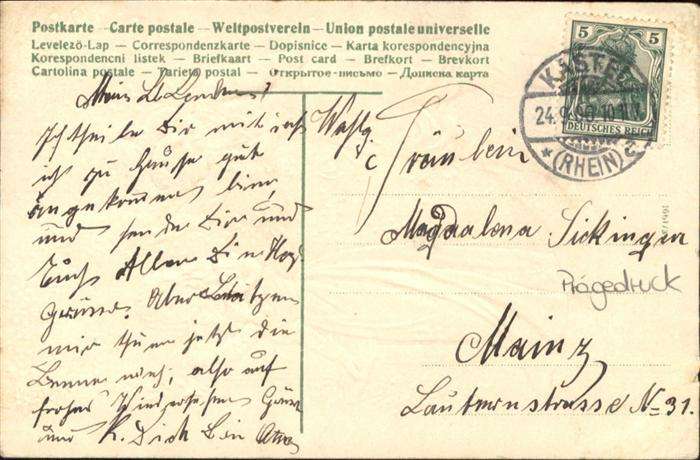 Postkarte — Carte postale — Weltpostverein — Union postale universelle
Levelező-Lap — Correspondenzkarte — Dopisnice — Karta korespondencyjna
Korespondencni listek — Briefkaart — Post card — Brefkort — Brevkort
Cartolina postale — Tarjeta postal — Открытое письмо — Дописна карта
5 5
DEUTSCHES REICH
KASTEL
24.9.
(RHEIN)
Mein Lb.
Ich theile Dir mit
zu Hause gut
angekommen bin,
und sende Dir und
Euch Allen
Grüsse. Aber
mir thuen jetzt die
Beene weh, also auf
frohes Wiedersehen Gruss
und K. Dich Bin
Wohlg.
Fräulein
Magdalena Sickinger
Prägedruck
Mainz
No 31.